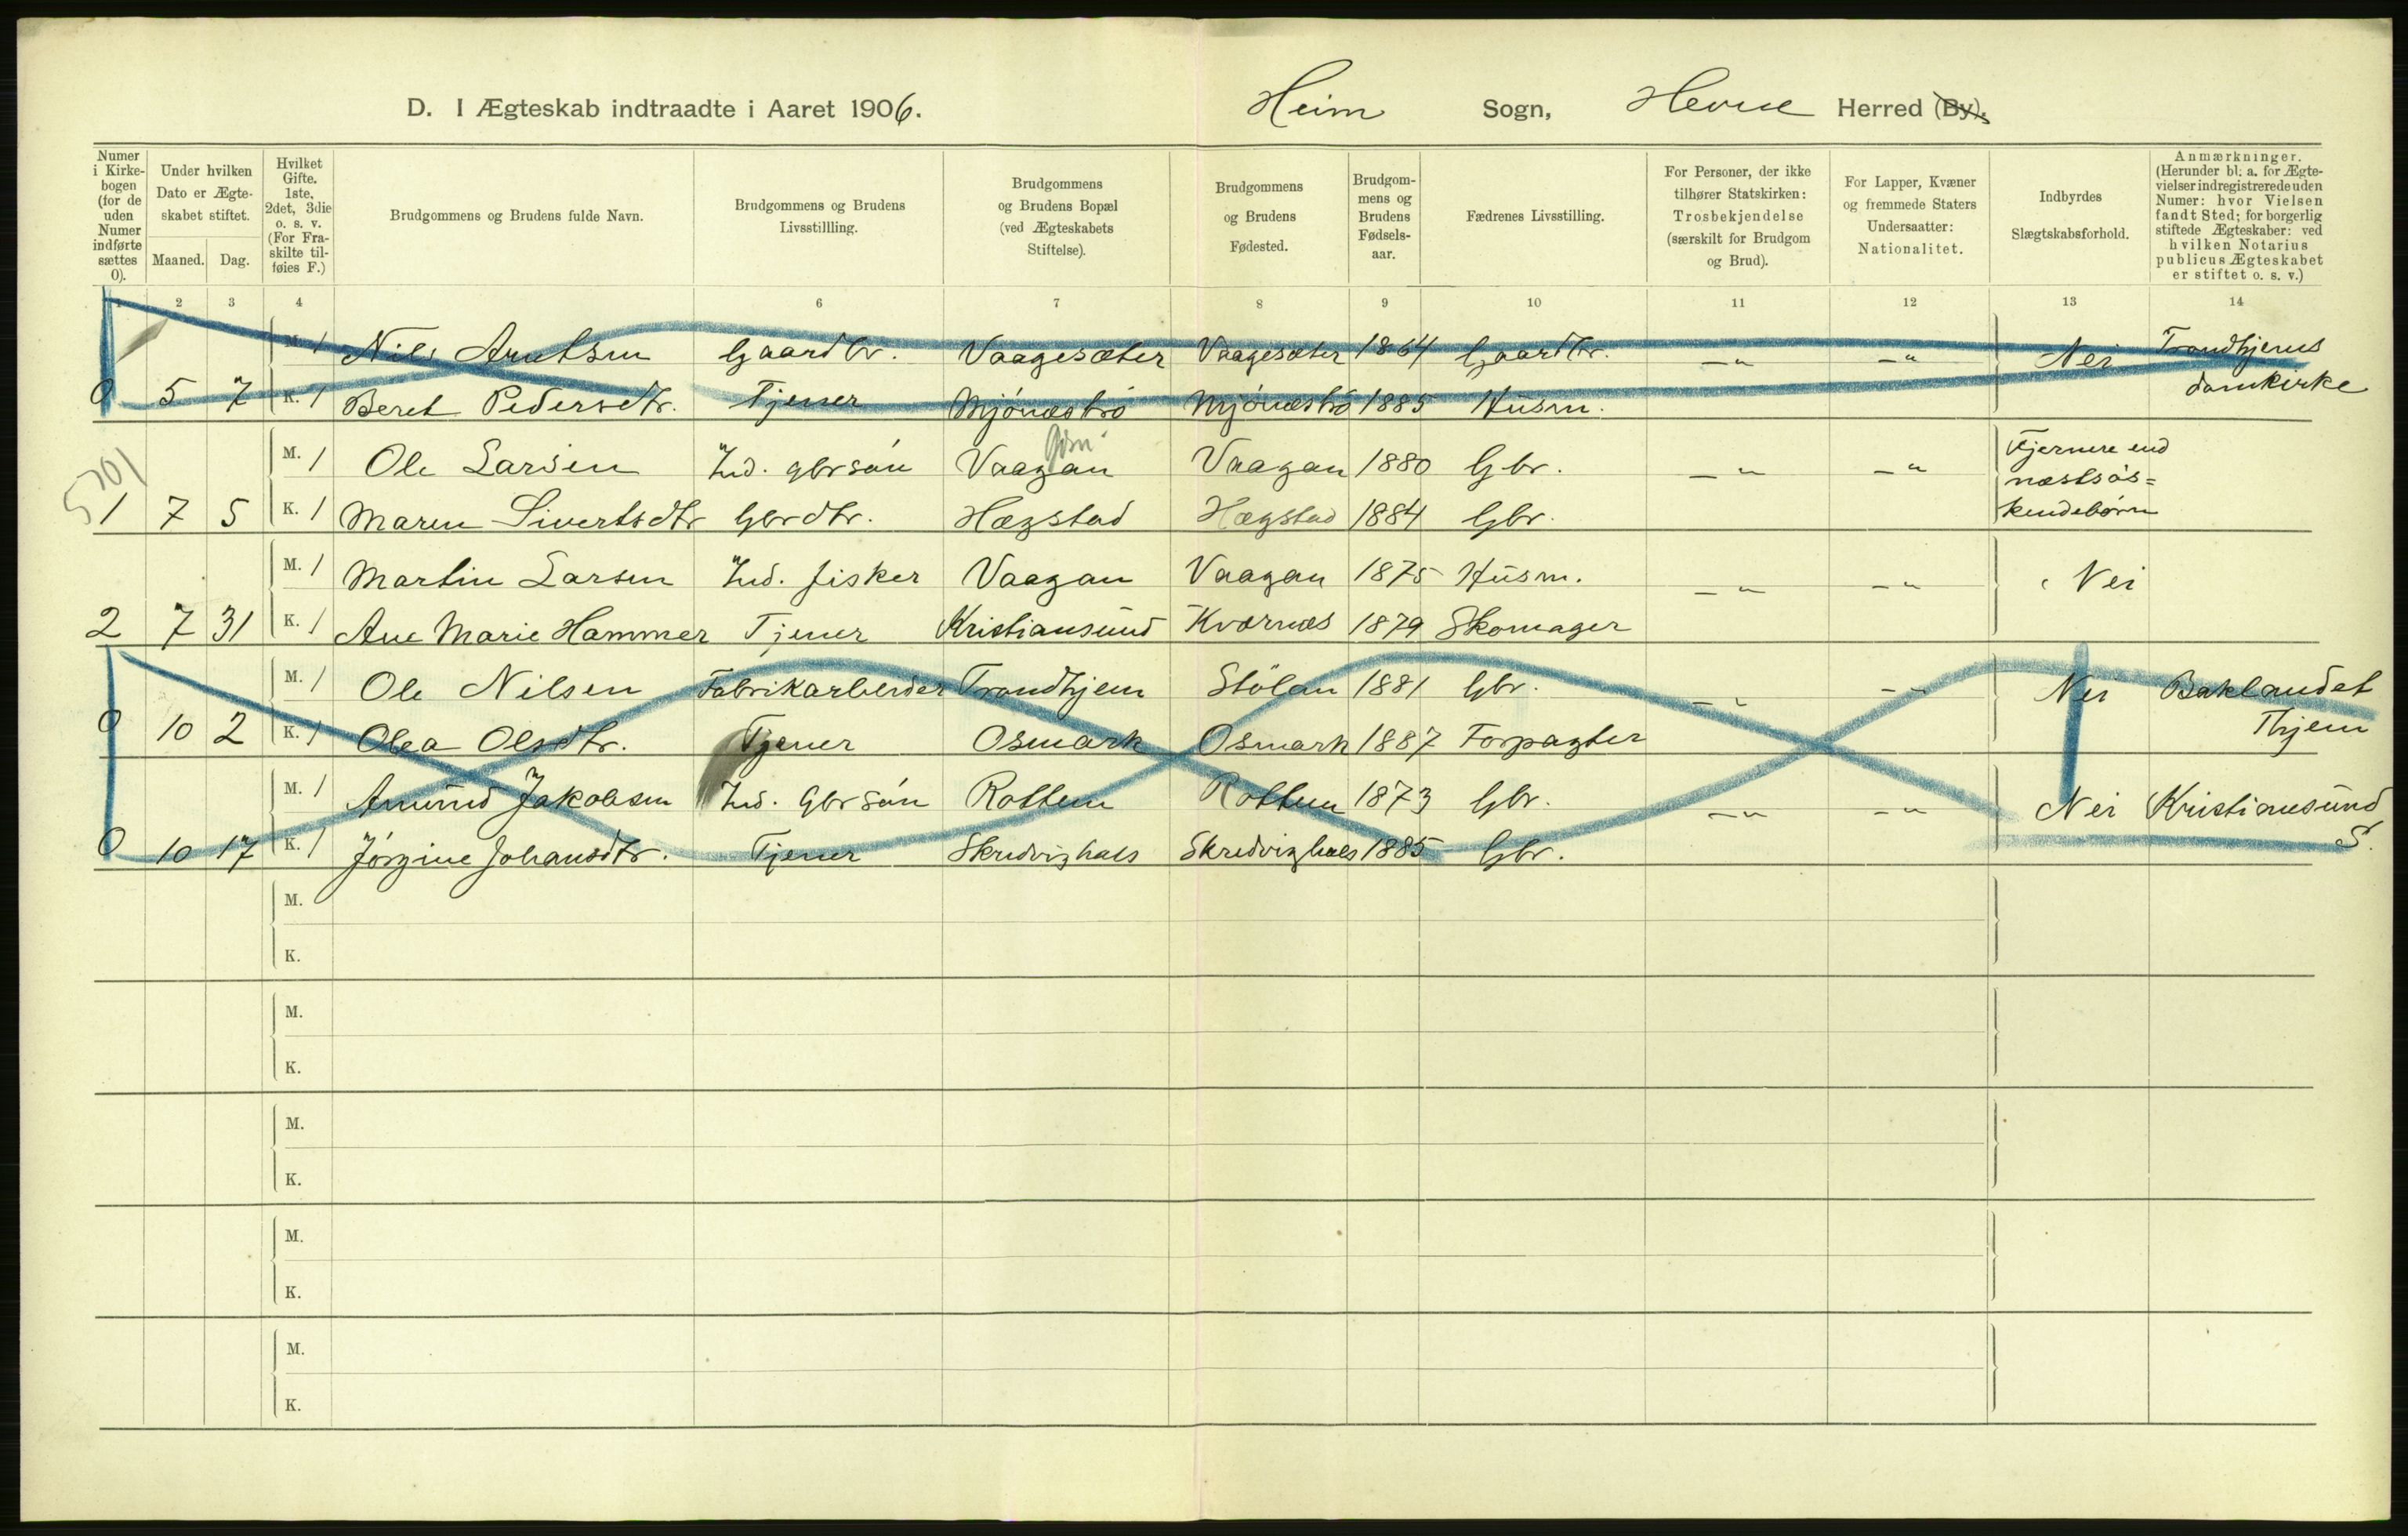 D. I Ægteskab indtraadte i Aaret 1906. Heim Sogn, Hevne Herred (By).
Numer i Kirke- bogen (for de uden Numer indførte sættes 0).
Under hvilken Dato er Ægte- skabet stiftet.
Maaned. Dag.
Hvilket Gifte. 1ste, 2det, 3die o. s. v. (For Fra- skilte til- føies F.)
Brudgommens og Brudens fulde Navn.
Brudgommens og Brudens Livsstillling.
Brudgommens og Brudens Bopæl (ved Ægteskabets Stiftelse).
Brudgommens og Brudens Fødested.
Brudgom- mens og Brudens Fødsels- aar.
Fædrenes Livsstilling.
For Personer, der ikke tilhører Statskirken: Trosbekjendelse (særskilt for Brudgom og Brud).
For Lapper, Kvæner og fremmede Staters Undersaatter: Nationalitet.
Indbyrdes Slægtskabsforhold.
Anmærkninger. (Herunder bl. a. for Ægte- vielser indregistrerede uden Numer: hvor Vielsen fandt Sted; for borgerlig stiftede Ægteskaber: ved hvilken Notarius publicus Ægteskabet er stiftet o. s. v.)
1 2 3 4 6 7 8 9 10 11 12 13 14
M. 1 Nils Arntsen Gaardbr. Vaagesæter Vaagesæter 1864 Gaardbr. — " — " Nei Trondhjems
0 5 7 K. 1 Beret Pedersdtr. Tjener Mjönæsbrö Mjönæsbrö 1885 Husm. domkirke
M. 1 Ole Larsen Ind. gbrsön Vaagan Vaagan 1880 Gbr. — " — " Fjernere end næstsös=
5701
1 7 5 K. 1 Maren Sivertsdtr Gbrdtr. Hægstad Hægstad 1884 Gbr. kendebörn
M. 1 Martin Larsen Ind. fisker Vaagan Vaagan 1875 Husm. — " — " Nei
2 7 31 K. 1 Ane Marie Hammer Tjener Kristiansund Kværnes 1879 Skomager
M. 1 Ole Nilsen Fabrikarbeider Trondhjem Stölan 1881 Gbr. — " — " Nei Baklandet
0 10 2 K. 1 Olea Olsdtr. Tjener Osmark Osmark 1887 Forpagter Thjem
M. 1 Amund Jakobsen Ind. Gbrsön Rottem Rottem 1873 Gbr. — " — " Nei Kristiansund
0 10 17 K. 1 Jörgine Johansdtr. Tjener Skredvighals Skredvighals 1885 Gbr. S.
M.
K.
M.
K.
M.
K.
M.
K.
M.
K.